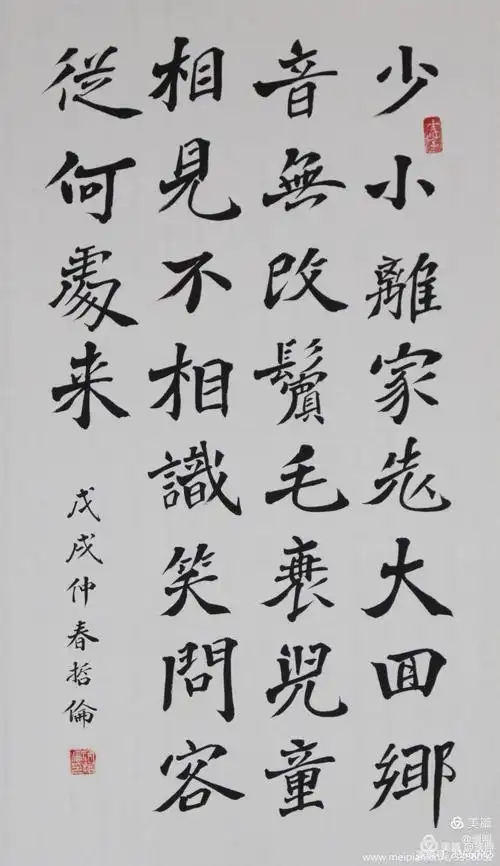 少小離家老大回鄉
音無改鬢毛衰兒童
相見不相識笑問客
從何處来
戊戌仲春哲倫
美篇